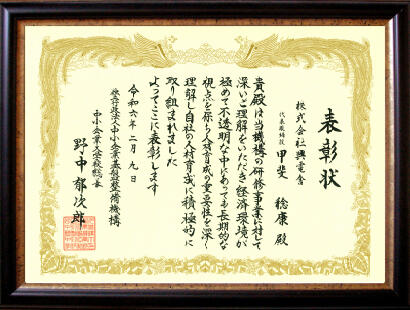 表彰状
株式会社興電舎
代表取締役 甲斐 稔康 殿
貴殿は当機構の研修事業に対して
深いご理解をいただき経済環境が
極めて不透明な中にあっても長期的な
視点を保ち人材育成の重要性を深く
理解し自社の人材育成に積極的に
取り組まれました
よってここに表彰します
令和六年二月九日
独立行政法人中小企業基盤整備機構
中小企業大学校総長
野中郁次郎